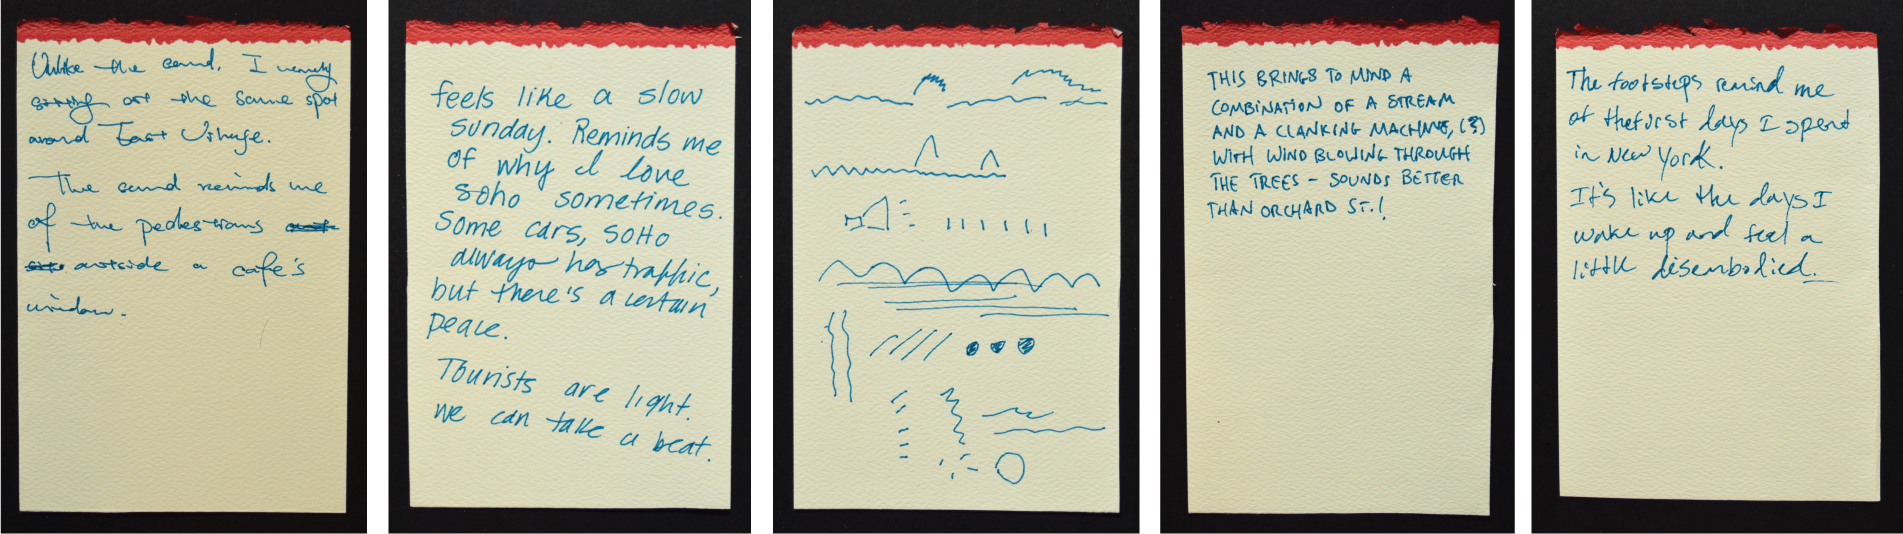 Unlike the sound, I usually
at the same spot
around East Village.
The sound reminds me
of the pedestrians
outside a cafe's
window.
feels like a slow
sunday. Reminds me
of why I love
soho sometimes.
Some cars, SoHo
always has traffic,
but there's a certain
peace.
Tourists are light.
we can take a beat.
THIS BRINGS TO MIND A
COMBINATION OF A STREAM
AND A CLANKING MACHINE, (?)
WITH WIND BLOWING THROUGH
THE TREES – SOUNDS BETTER
THAN ORCHARD ST.!
The footsteps remind me
of the first days I spent
in New York.
It's like the days I
wake up and feel a
little disembodied.